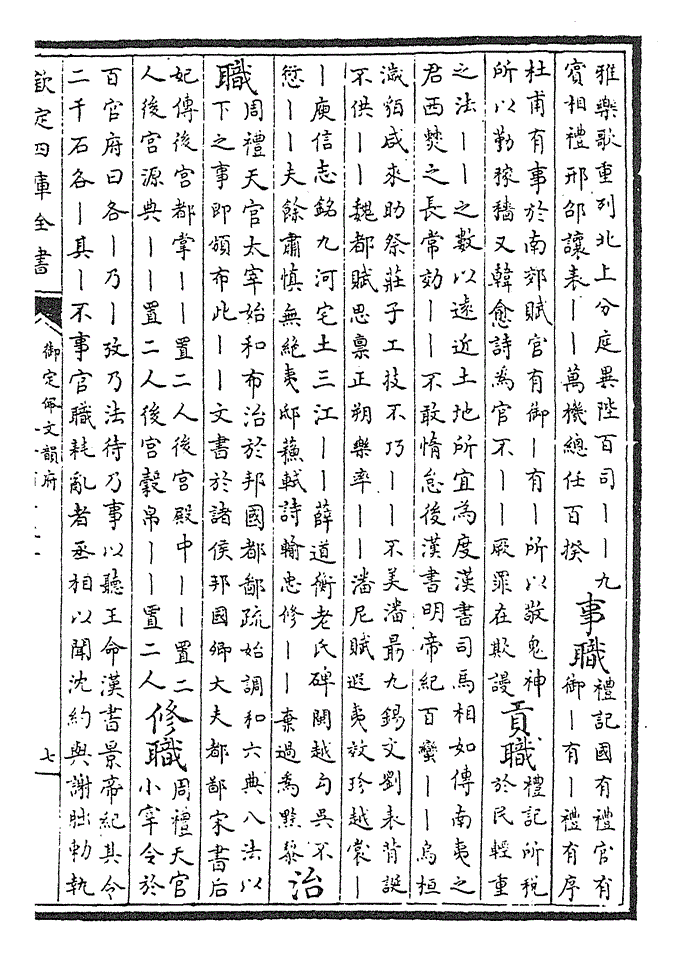 雅樂歌重列北上分庭異陛百司丨丨九
賓相禮邢邵讓表丨丨萬機總任百揆
事職
禮記國有禮官有
御丨有丨禮有序
杜甫有事於南郊賦官有御丨有丨所以敬鬼神
所以勤稼穡又韓愈詩為官不丨丨厥罪在欺謾
貢職
禮記所稅
於民輕重
之法丨丨之數以遠近土地所宜為度漢書司馬相如傳南夷之
君西僰之長常効丨丨不敢惰怠後漢書明帝紀百蠻丨丨烏桓
濊貊咸來助祭莊子工技不巧丨丨不美潘最九錫文劉表背誕
不供丨丨魏都賦思稟正朔樂率丨丨潘尼賦遐夷效珍越裳丨
丨庾信志銘九河宅土三江丨丨薛道衡老氏碑閩越勾吳不
愆丨丨夫餘肅慎無絕夷邸蘇軾詩輸忠修丨丨棄過為黥黎
治
職
周禮天官太宰始和布治於邦國都鄙疏始調和六典八法以
下之事即頒布此丨丨文書於諸侯邦國卿大夫都鄙宋書后
妃傳後宮都掌丨丨置二人後宮殿中丨丨置二
人後宮源典丨丨置二人後宮縠帛丨丨置二人
修職
周禮天官
小宰令於
百官府曰各丨乃丨攷乃法待乃事以聽王命漢書景帝紀其令
二千石各丨其丨不事官職耗亂者丞相以聞沈約與謝朏勅執
欽定四庫全書
御定佩文韻府
七